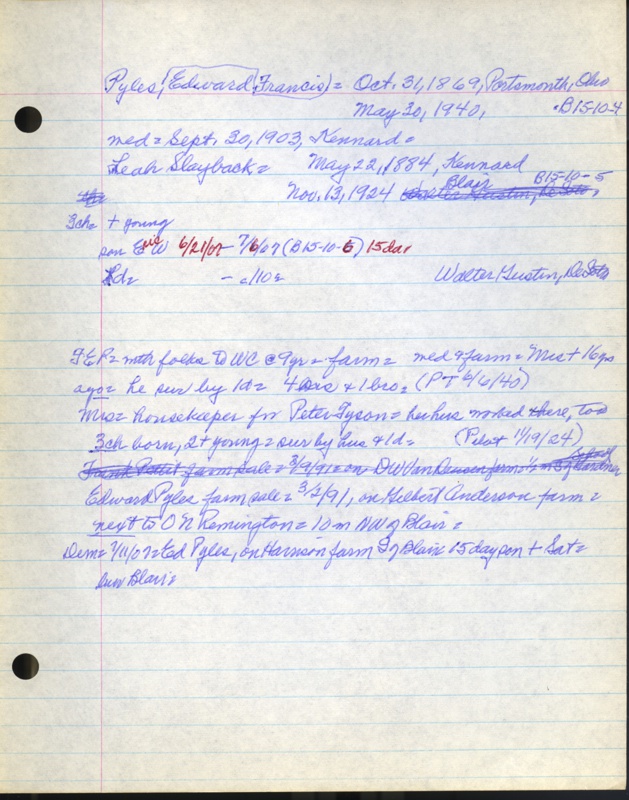 Pyles, (Edward, Francis) = Oct. 31, 1869, Portsmouth, Ohio
May 30, 1940, B15-10-4
med = Sept. 30, 1903, Kennard =
Leah Slayback = May 22, 1884, Kennard
Nov. 13, 1924 Blair B15-10-5
3ch = + young
son W 6/21/07 - 7/6/07 (B15-10-6) 15da
1d = - c/10 = Walter Gustin, DeSoto
FEP = with folks to WC @ 9yr = farm = med & farm = Mrs + 16 yrs
ago = he sur by 1d = 4 sis & 1 bro = (PT 6/6/40)
Mrs = housekeeper for Peter Tyson = her hus worked there, too
3ch born, 2 + young = sur by hus & 1d = (Pilot 11/19/24)
Frank Pettit farm sale = 3/9/91 = on DW Van Deusen farm
Edward Pyles farm sale = 3/2/91, on Gilbert Anderson farm =
next to O N Remington = 10 m NW of Blair =
Dem = 7/11/07 = Ed Pyles, on Harrison farm S of Blair 15 day son + Sat =
bur Blair =